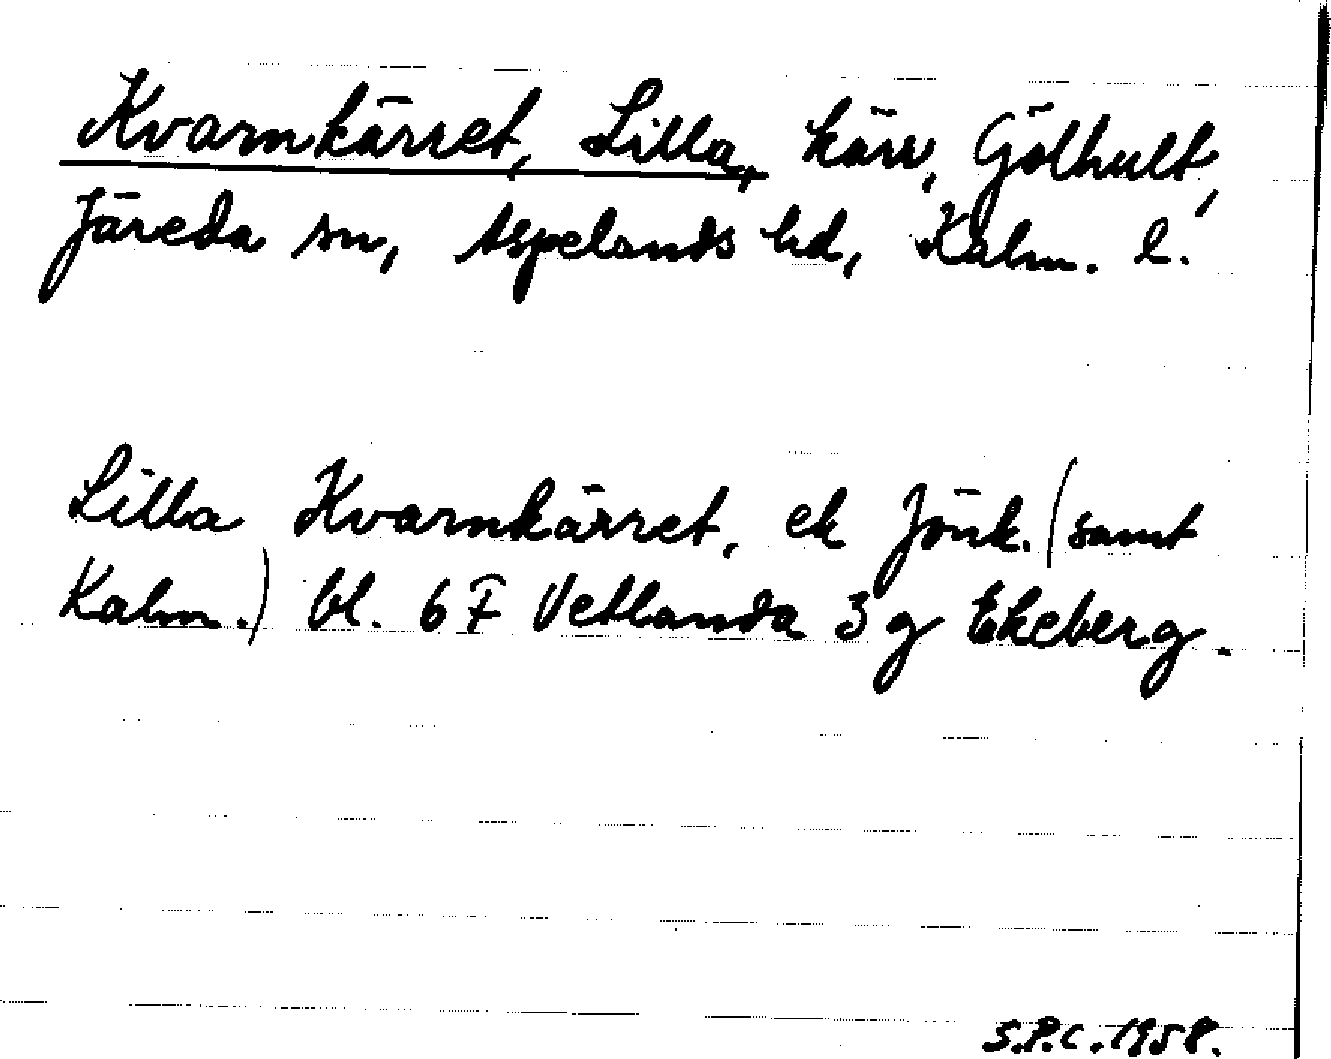 Kvarnkärret, Lilla, kärr, Gölhult,
Järeda sn, Aspelands hd, Kalm. l.
Lilla Kvarnkärret, ek Jönk. (samt
Kalm.) bl. 6 F Vetlanda 3 g Ekeberg.
S.P.C. 1958.